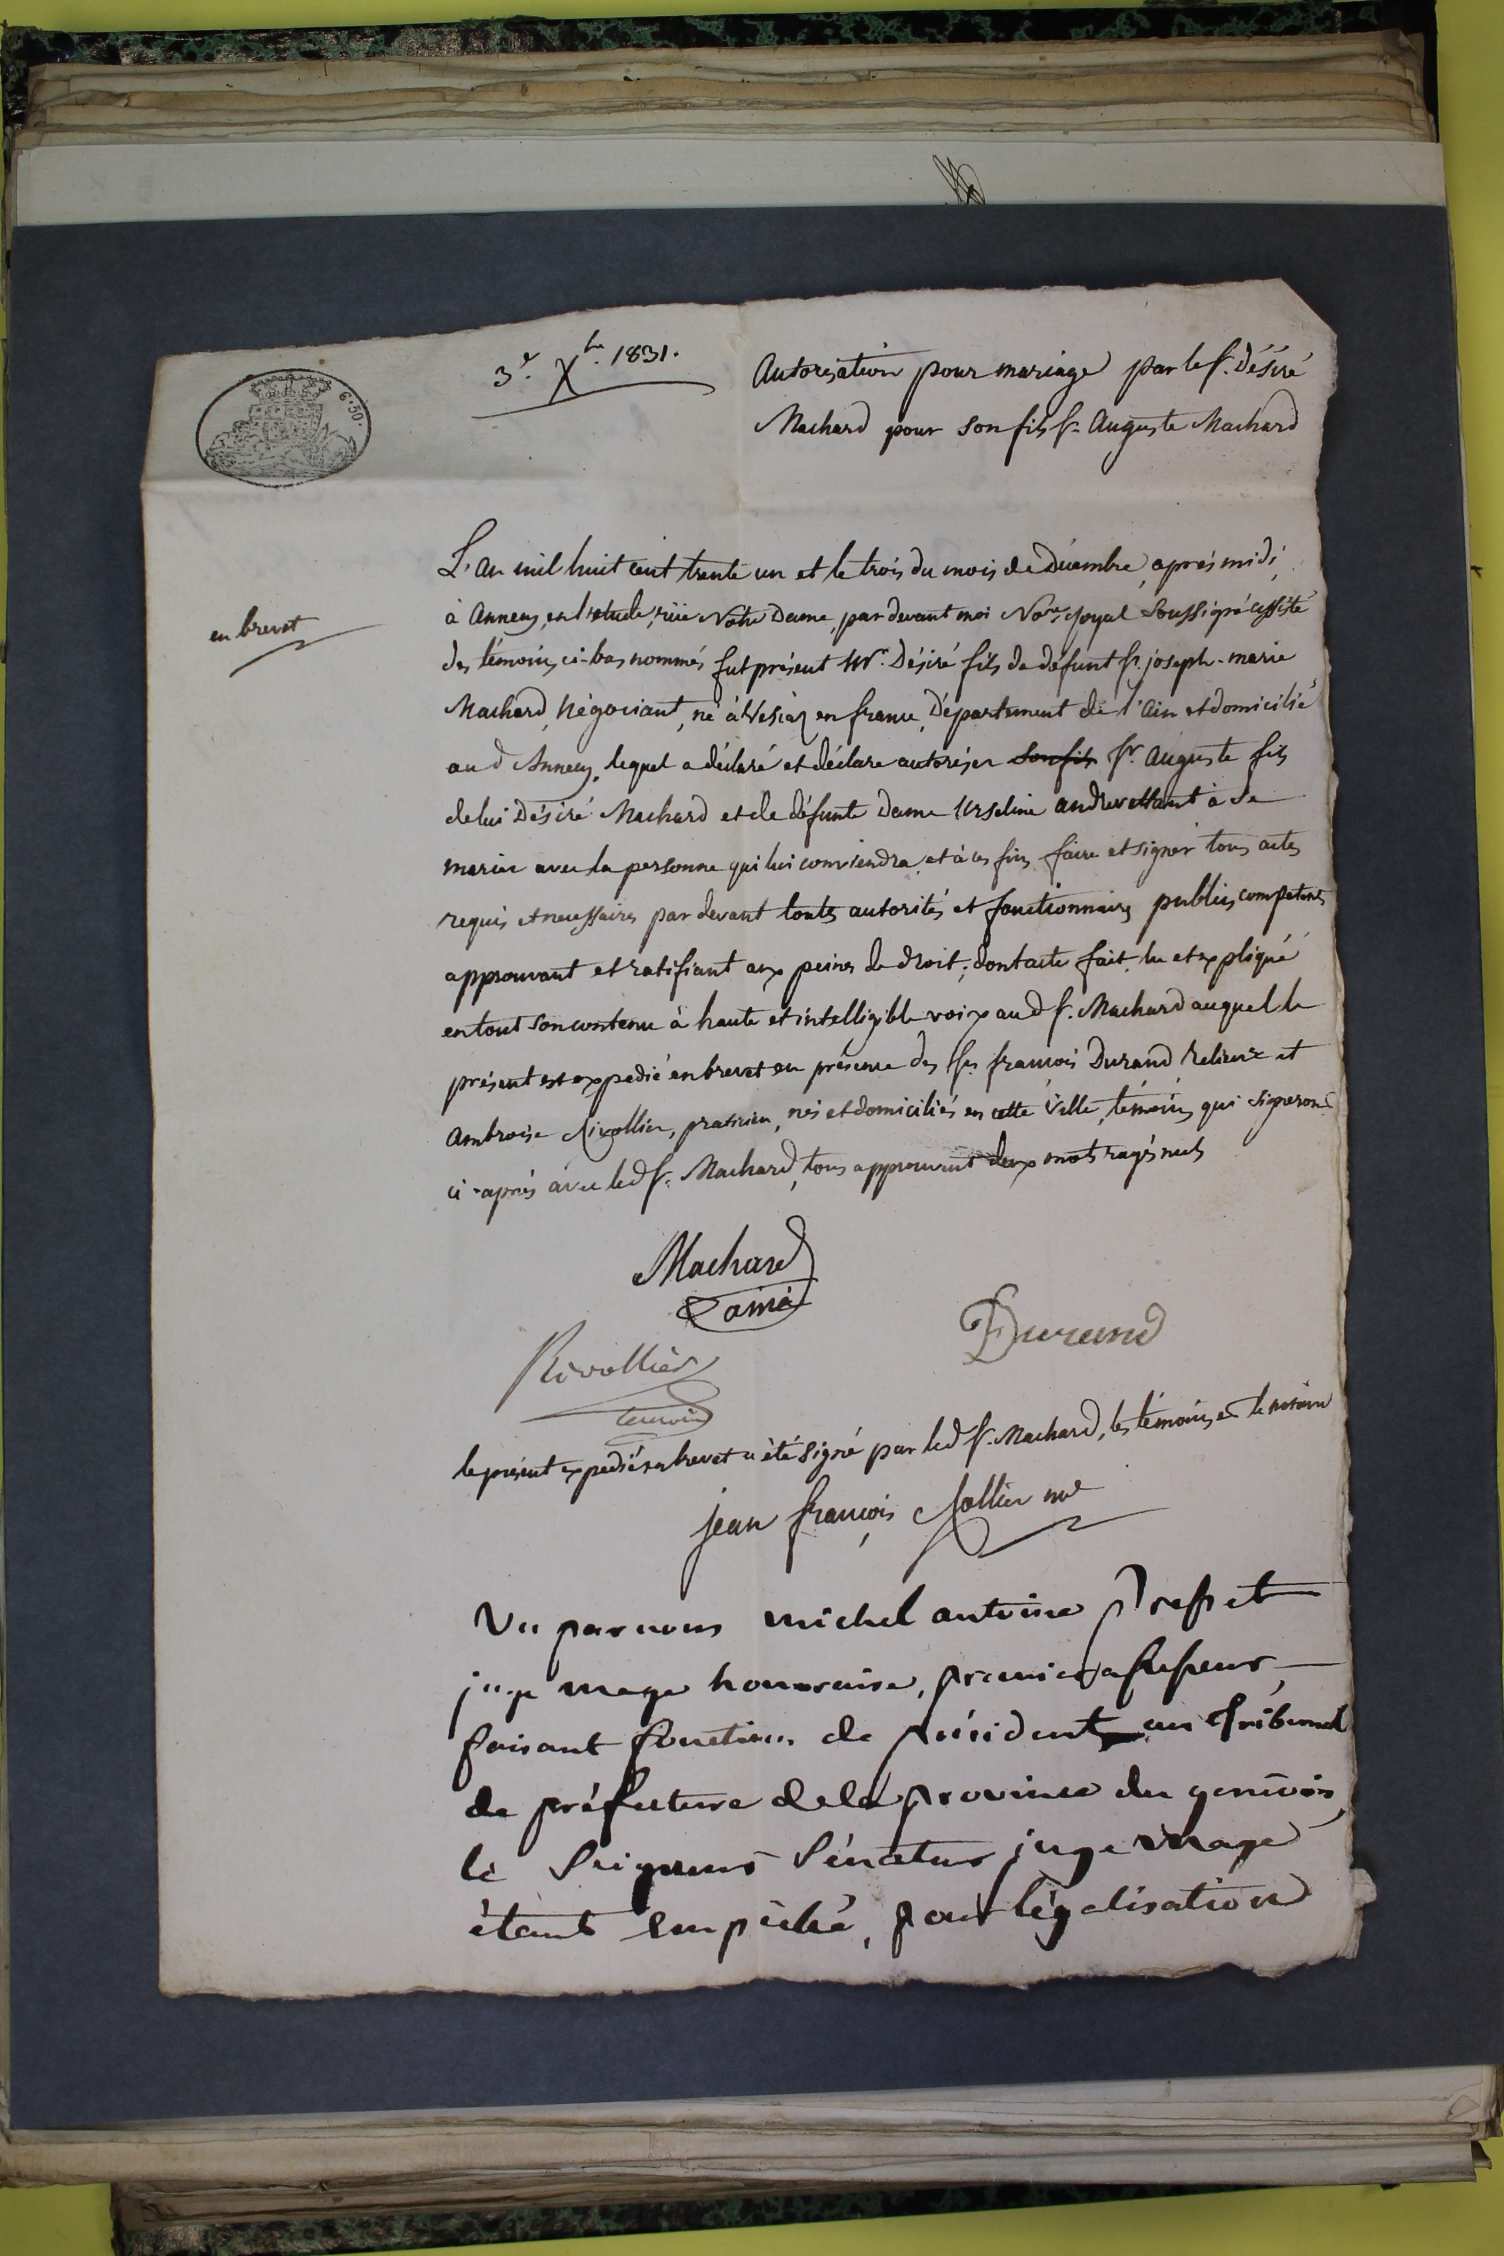 6·50·
3e. Xbre. 1831.
Autorisation pour mariage par le sr. Désiré
Machard pour son fils sr. Auguste Machard
L'an mil huit cent trente un et le trois du mois de Décembre, après midi,
en brevet
à Annecy, en l'etude, rüe Notre Dame, par devant moi Nore. Royal Soussigné assisté
des témoins ci-bas nommés fut présent Mr. Désiré fils de défunt sr. joseph-marie
Machard, Négociant, né à en france, Département de l'Ain et domicilié
aud Annecy, lequel a déclaré et déclare autoriser son fils sr. Auguste fils
de lui Désiré Machard et de défunte Dame Urseline à se
marier avec la personne qui lui conviendra, et à ces fins faire et signer tous actes
requis et necessaires par devant toutes autorités et fonctionnaires publics competents
approuvant et ratifiant aux peines de droit; dont acte fait, lu et expliqué
en tout son contenu à haute et intelligible voix aud sr. Machard auquel le
présent est expedié en brevet en présence des srs. françois Durand Relieur et
Ambroise Rivollier, praticien, nés et domiciliés en cette Ville, témoins qui signeront
ci-après avec led sr. Machard, tous approuvent deux mots rayés nuls
Machard
ainé
Durand
Rivollier
temoin
le présent expedié en brevet a été signé par led sr. Machard, les témoins et le notaire
jean françois Rollier nre
Vu par nous michel antoine
juge mage honoraire, premier assesseur
faisant fonctions de président au Tribunal
de préfecture de la province du genevois,
le Seigneur Sénateur juge mage
étant empêché, pour légalisation